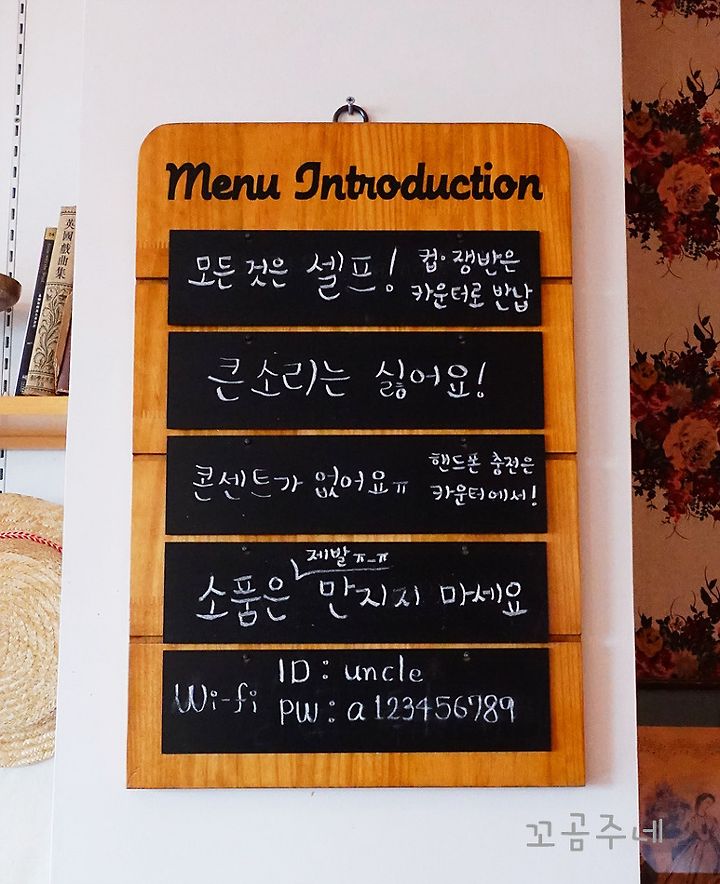 Menu Introduction
모든 것은 셀프! 컵·쟁반은
카운터로 반납
큰소리는 싫어요!
콘센트가 없어요ㅠ 핸드폰 충전은
카운터에서!
제발ㅠ_ㅠ
소품은 만지지 마세요
Wi-fi
ID : uncle
PW : a123456789
英國戲曲集
꼬곰주네